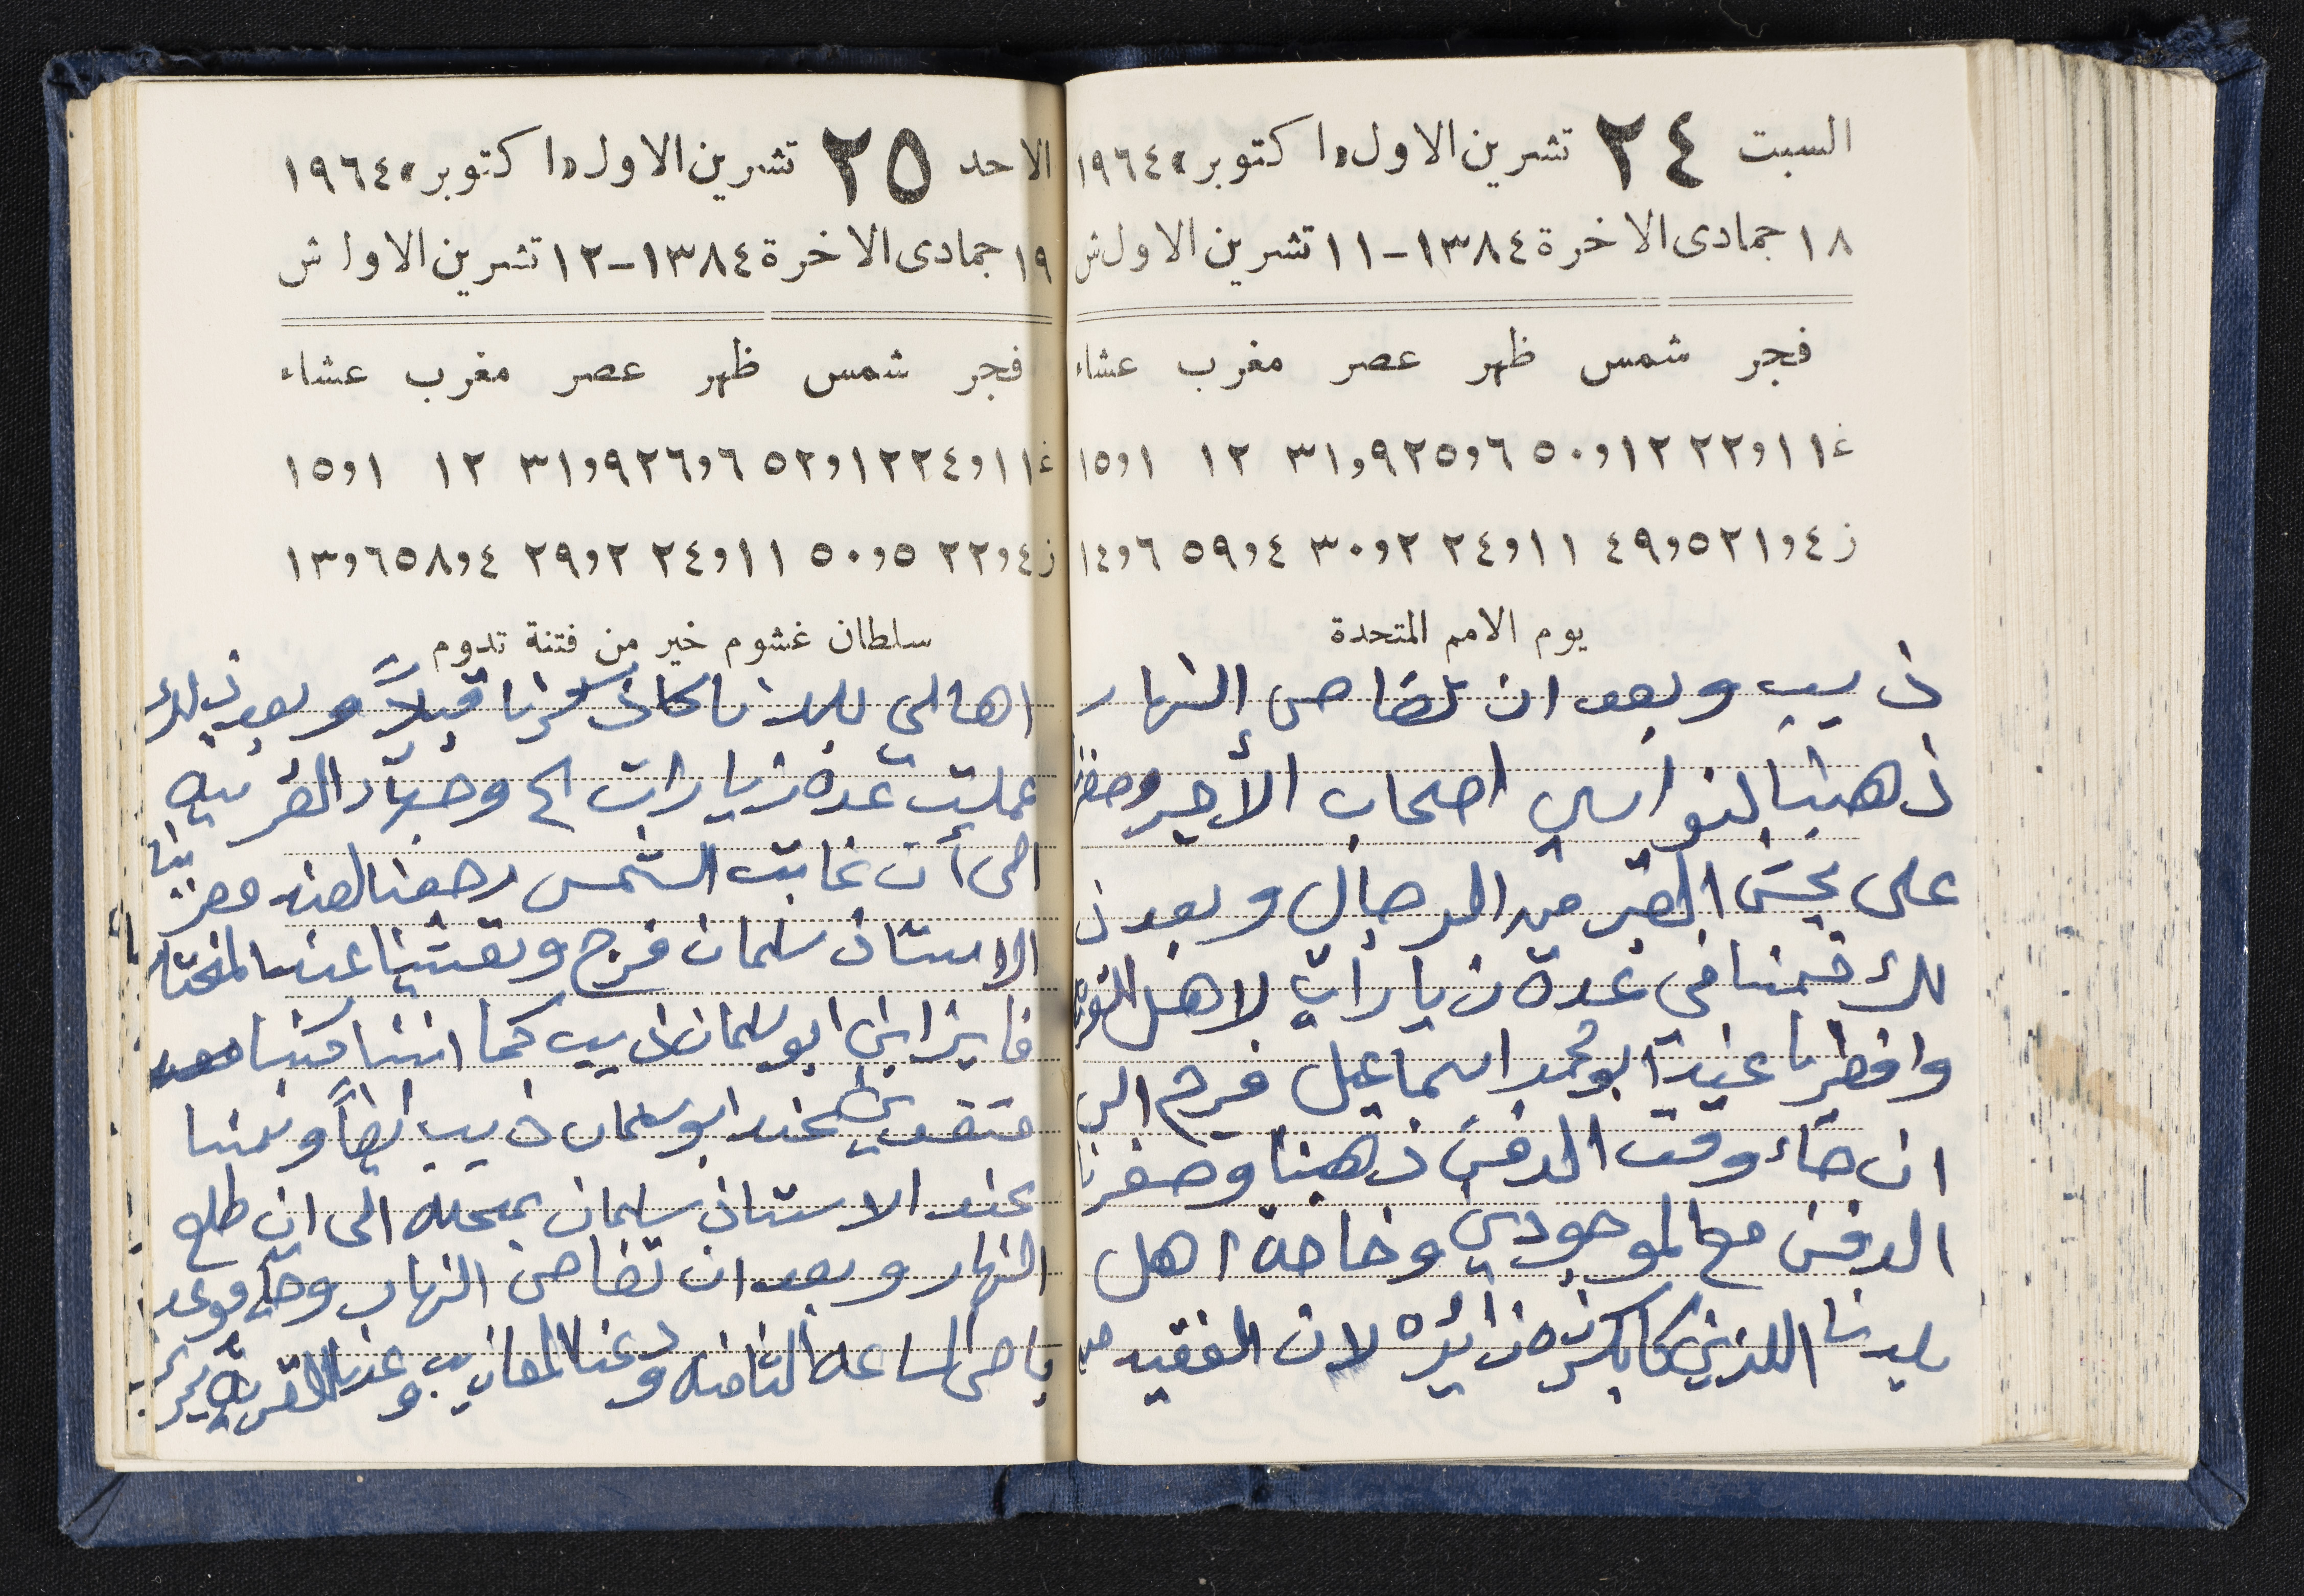 السبت ٢٤ تشرين الاول «اكتوبر» ١٩٦٤
١٨ جمادى الاخرة ١٣٨٤-١١ تشرين الاول ش
فجر شمس ظهر عصر مغرب عشاء
غ ١١و٢٢ ١٢و٥٠ ٦و٢٥ ٩و٣١ ١٢ ١و١٥
ز ٤و٢١ ٥و٤٩ ١١و٢٤ ٢و٣٠ ٤و٥٩ ٦و١٤
يوم الامم المتحدة
ذيب وبعد ان تضاحى النهار
ذهبنا لنواسي اصحاب الأجر
على القبر من الرجال وبعد ذ
لك قمنا في عدة زيارات لاهل
وافطرنا عند ابو محمد اسماعيل فرج الى
ان جاء وقت الدفن ذهبنا وحضرنا
الدفن مع الموجودين وخاصة اهل
بلدنا اللذين زائره لان الفقيد
الاحد ٢٥ تشرين الاول «اكتوبر» ١٩٦٤
١٩ جمادى الاخرة ١٣٨٤-١٢ تشرين الاول ش
فجر شمس ظهر عصر مغرب عشاء
غ ١١و٢٤ ١٢و٥٢ ٦و٢٦ ٩و٣١ ١٢ ١و١٥
ز ٤و٢٢ ٥و٥٠ ١١و٢٤ ٢و٢٩ ٤و٥٨ ٦و١٣
سلطان غشوم خير من فتنة تدوم
اهالي بلدنا كما ذكرنا قبلاً وبعد ذلك
عملت عدة زيارات
الى أن غابت الشمس رجعنا لعند
الاستاذ سلمان فرج وتعشينا عند المختار
فايز ابن ابو سلمان ذيب كما اننا كنا
عند ابو سلمان ذيب ايضاً ونمنا
عند الاستاذ سلمان بمحله الى ان طلع
النهار وبعد ان تضاحى النهار وجاء موعد
باص الساعه الثامنه ودعنا المعازيب